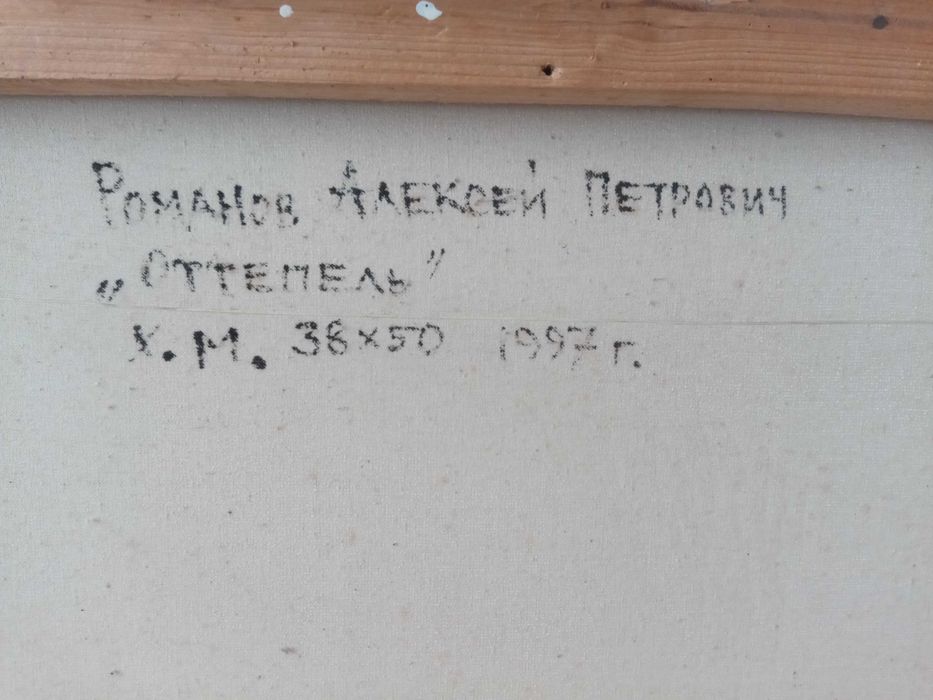 Романов Алексей Петрович
„Оттепель"
х.м. 38×50 1997г.